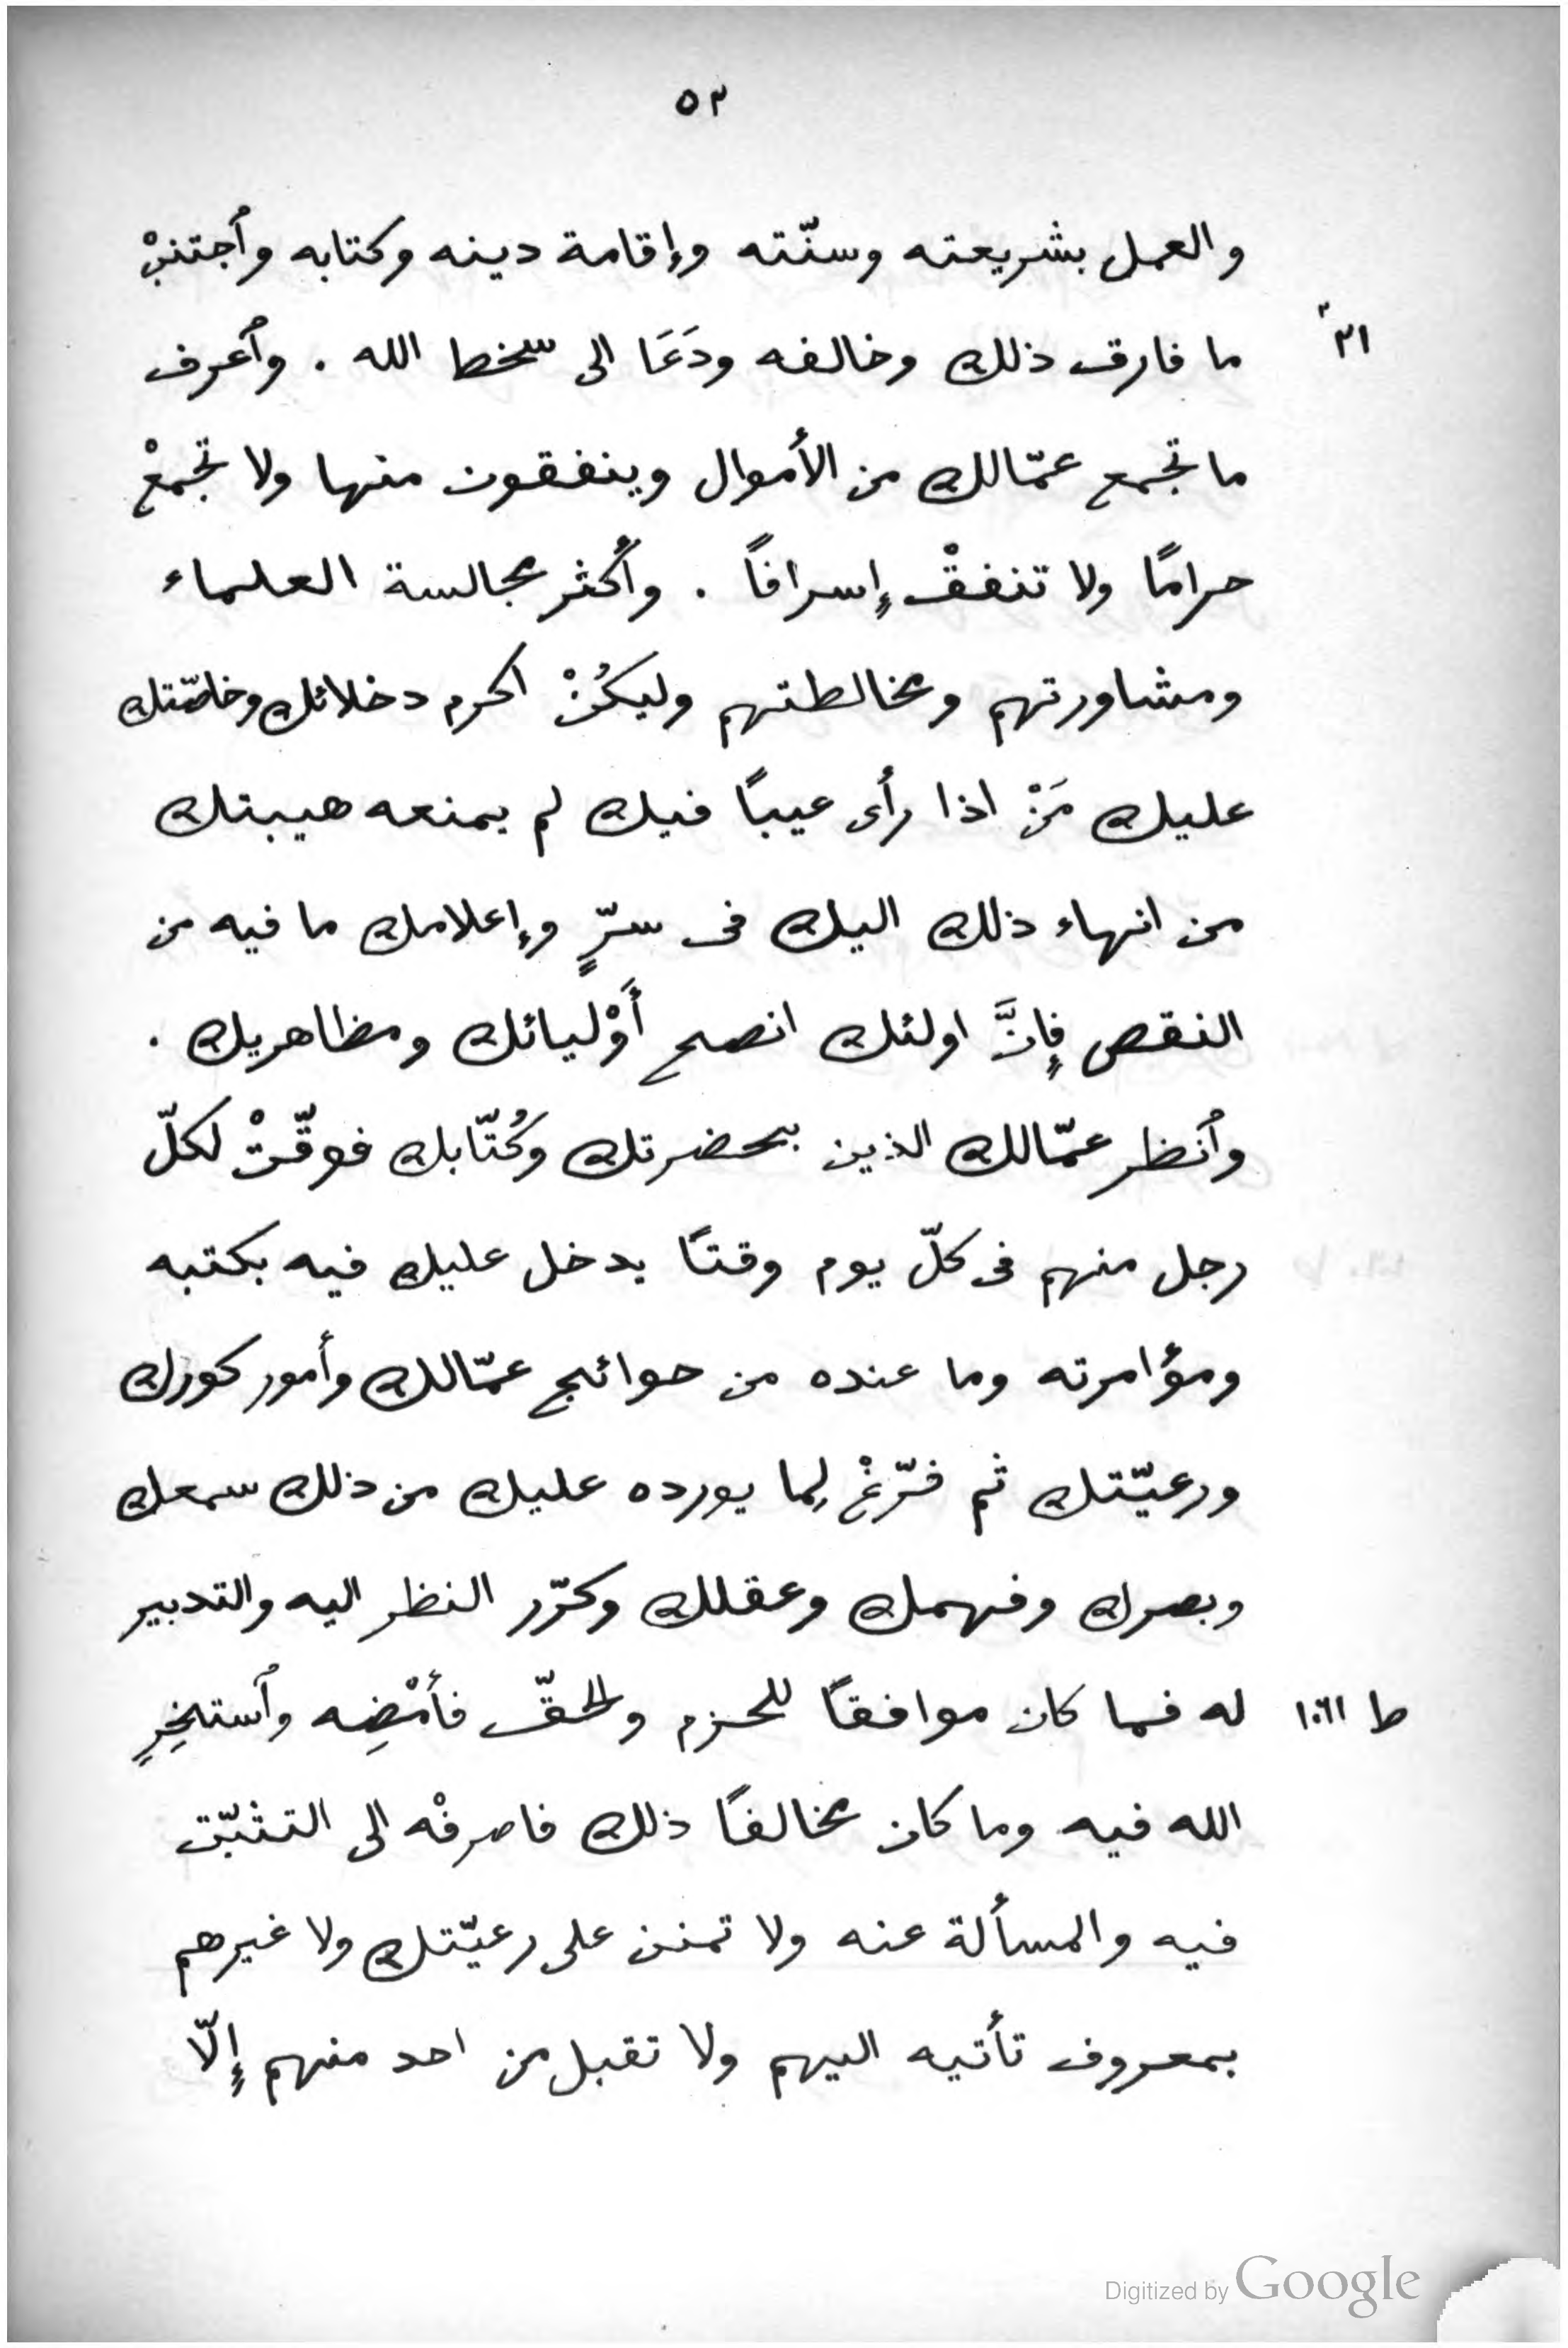 ٥٢
والعمل بشريعته وسنّته وإقامة دينه وكتابه وٱجتنبْ
ما فارق ذلك وخالفه ودَعَا الى سخط الله . وٱعرف
ما تجمع عمّالك من الأموال وينفقون منها ولا تجمعْ
حرامًا ولا تنفقْ إسرافًا . وأَكثر مجالسة العلماء
ومشاورتهم ومخالطتهم وليكُنْ اكرم دخلائك وخاصّتك
عليك مَنْ اذا رأى عيبًا فيك لم يمنعه هيبتك
من انهاء ذلك اليك فى سرٍّ وإعلامك ما فيه من
النقص فإنَّ اولئك انصح أَوْليائك ومظاهريك .
وٱنظر عمّالك الذين بحضرتك وكُتّابك فوقّتْ لكلّ
رجل منهم فى كلّ يوم وقتًا يدخل عليك فيه بكتبه
ومؤامرته وما عنده من حوائج عمّالك وأمور كورك
ورعيّتك ثم فرّغْ لِما يورده عليك من ذلك سمعك
وبصرك وفهمك وعقلك وكرّر النظر اليه والتدبير
له فما كان موافقًا للحزم والحقّ فأمْضِه وٱستخِرِ
ط ١٠٦١
الله فيه وما كان مخالفًا ذلك فاصرفْه الى التثبّت
فيه والمسألة عنه ولا تمنن على رعيّتك ولا غيرهم
بمعروف تأتيه اليهم ولا تقبل من احد منهم إلّا
Digitized by Google